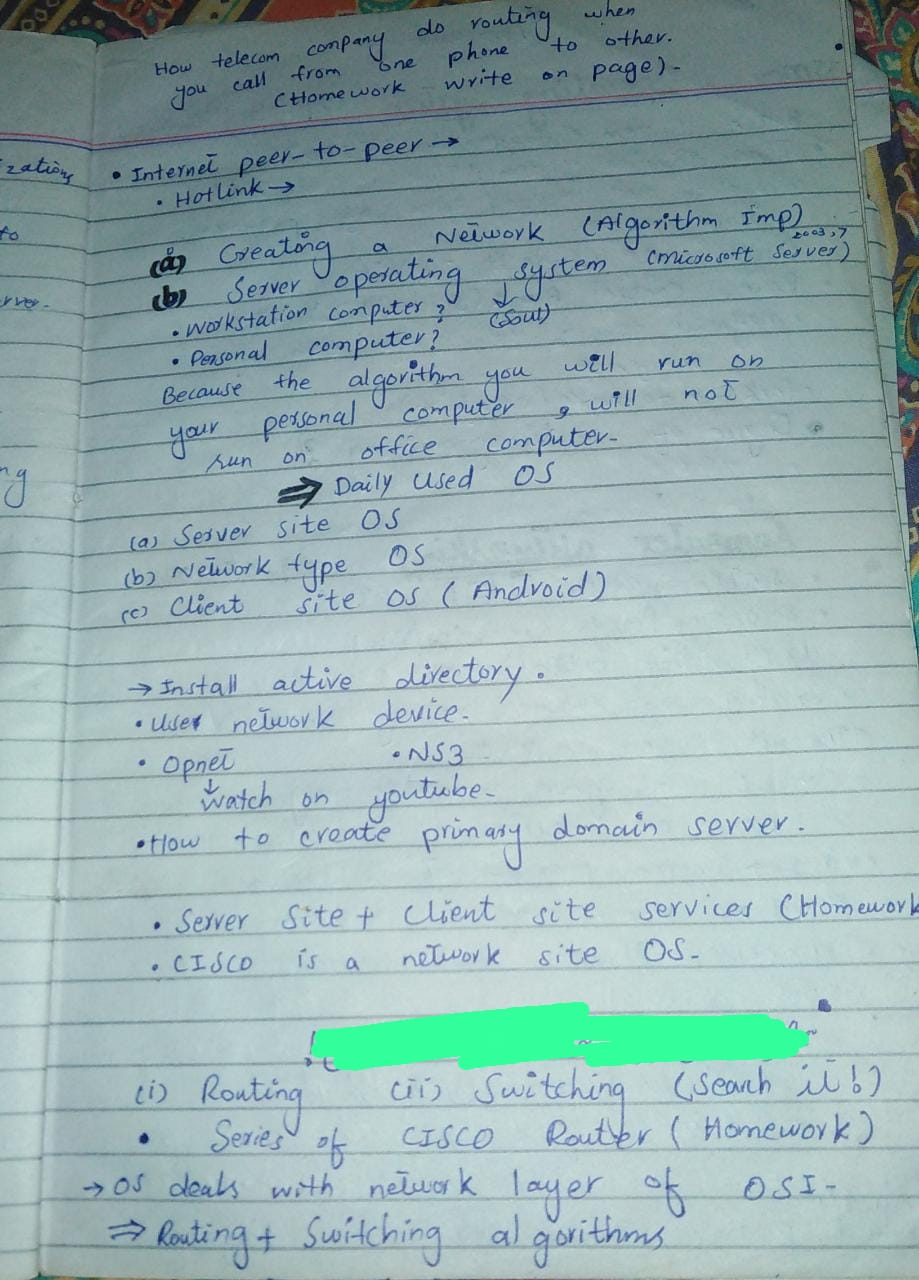 How telecom company do routing when
you call from one phone to other.
(Homework write on page).
zations
• Internet peer-to-peer →
• Hotlink →
to
(a) Creating a Network (Algorithm Imp)
2003,7
(b) Server operating system (microsoft Server)
• Workstation computer? ↓
(Sout)
• Personal computer?
Because the algorithm you will run on
your personal computer, will not
run on office computer.
ng
⇒ Daily Used OS
(a) Server site OS
(b) Network type OS
(c) Client site OS (Android)
→ Install active directory.
• User network device.
• Opnet • NS3
↓
Watch on youtube.
• How to create primary domain server.
• Server Site + Client site services (Homework
• CISCO is a network site OS.
(i) Routing (ii) Switching (Search it!)
• Series of CISCO Router (Homework)
→ OS deals with network layer of OSI-
⇒ Routing + Switching algorithms